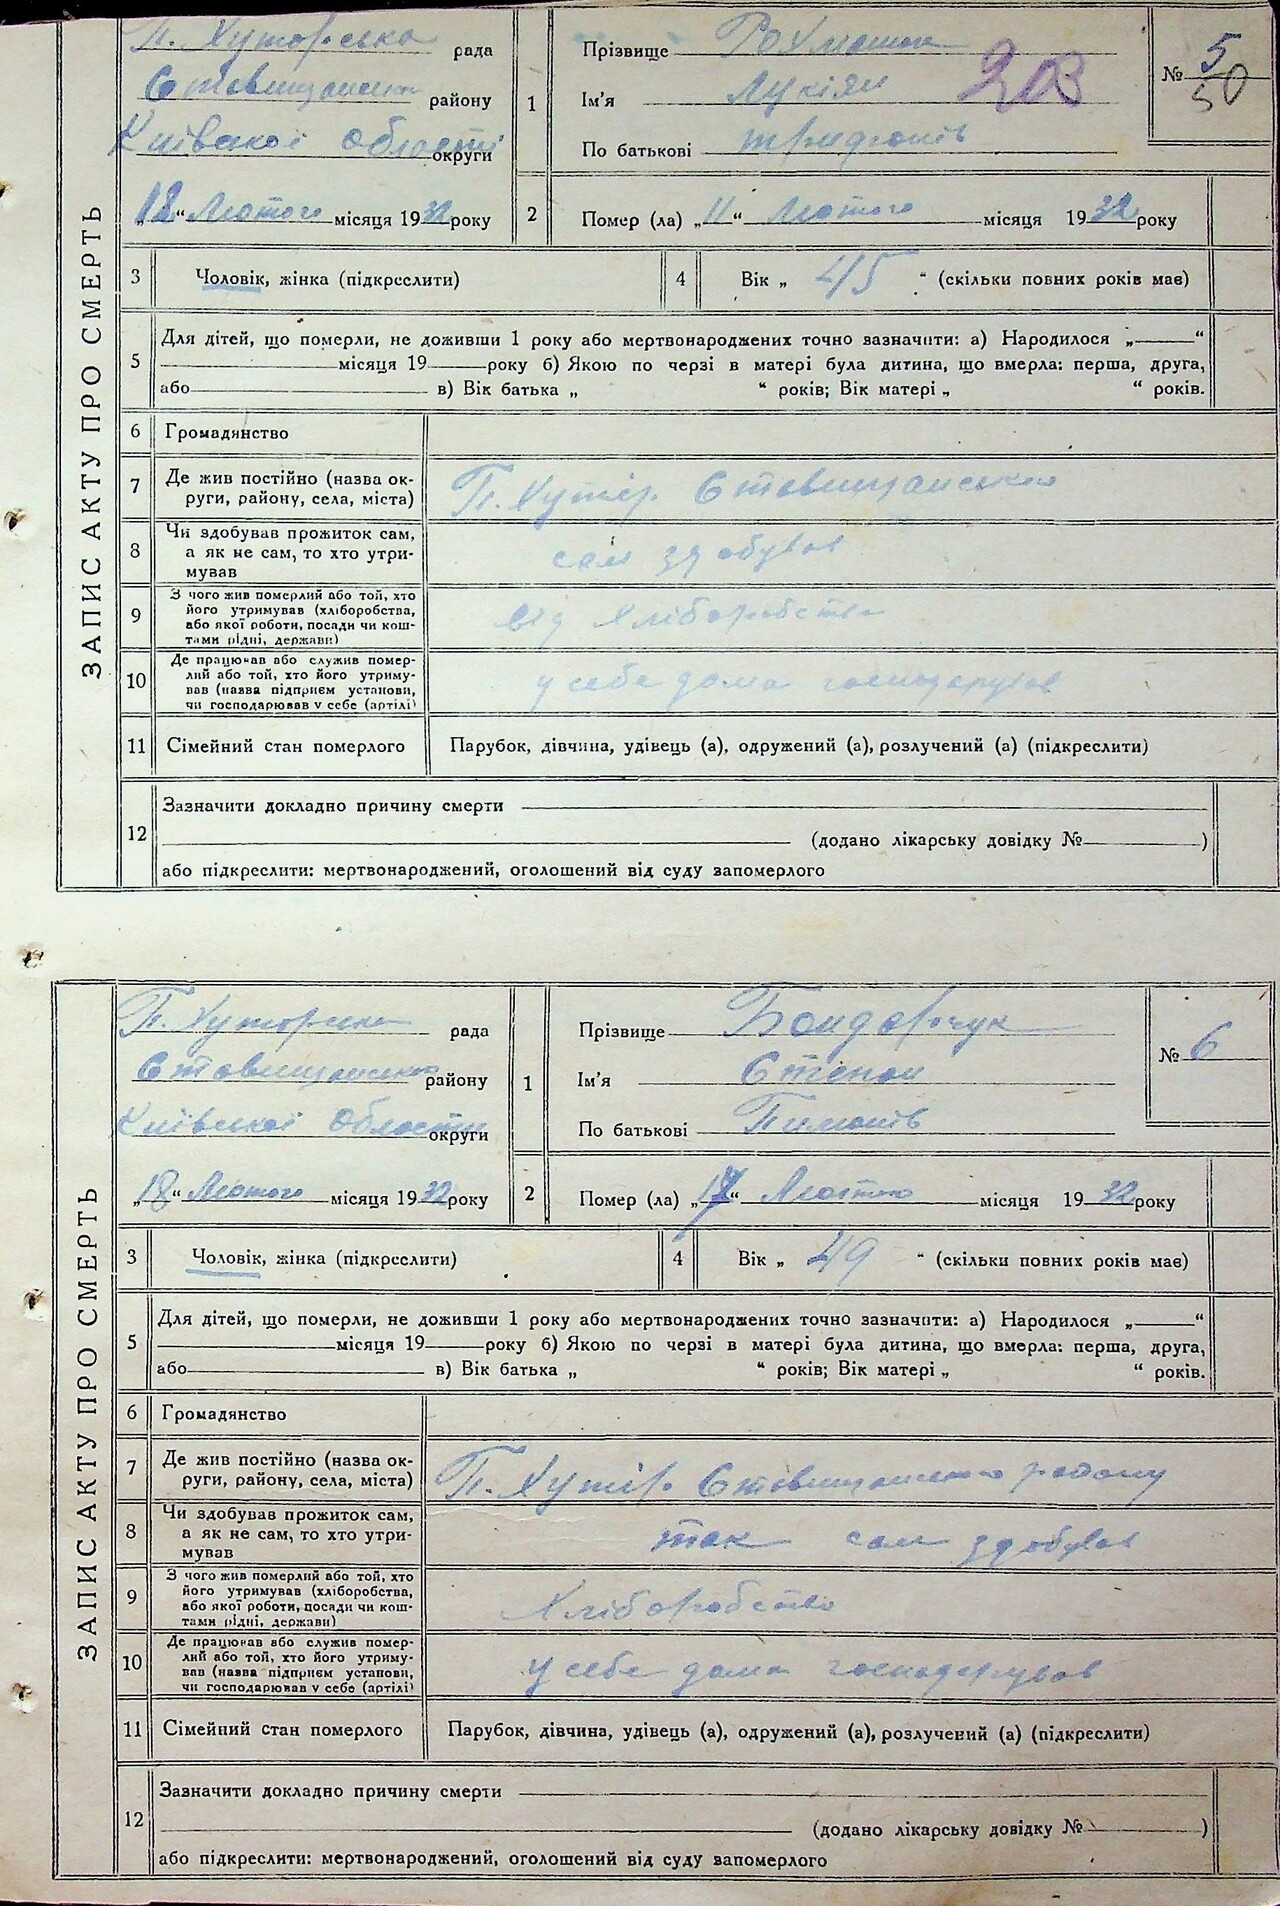 ЗАПИС АКТУ ПРО СМЕРТЬ
П. Хуторська рада
Ставищанського району
Київської Області округи
„18“ Лютого місяця 1932 року
1
Прізвище
Ім'я Лукіян
По батькові
203
№ 5
50
2
Помер (ла) „11“ Лютого місяця 1932 року
3
Чоловік, жінка (підкреслити)
4
Вік „ 45 “ (скільки повних років має)
5
Для дітей, що померли, не доживши 1 року або мертвонароджених точно зазначити: а) Народилося „ “
місяця 19 року б) Якою по черзі в матері була дитина, що вмерла: перша, друга,
або в) Вік батька „ “ років; Вік матері „ “ років.
6
Громадянство
7
Де жив постійно (назва ок-
руги, району, села, міста)
П. Хутір. Ставищанського
8
Чи здобував прожиток сам,
а як не сам, то хто утри-
мував
сам здобував
9
З чого жив померлий або той, хто
його утримував (хліборобства,
або якої роботи, посади чи кош-
тами рідні, держави)
від хліборобства
10
Де працював або служив помер-
лий або той, хто його утриму-
вав (назва підприєм установи,
чи господарював у себе (артілі)
у себе дома господарував
11
Сімейний стан померлого
Парубок, дівчина, удівець (а), одружений (а), розлучений (а) (підкреслити)
12
Зазначити докладно причину смерти
(додано лікарську довідку № )
або підкреслити: мертвонароджений, оголошений від суду запомерлого
ЗАПИС АКТУ ПРО СМЕРТЬ
П. Хуторська рада
Ставищанського району
Київської Області округи
„18“ Лютого місяця 1932 року
1
Прізвище Бондарчук
Ім'я Степан
По батькові
№ 6
2
Помер (ла) „17“ Лютого місяця 1932 року
3
Чоловік, жінка (підкреслити)
4
Вік „ 49 “ (скільки повних років має)
5
Для дітей, що померли, не доживши 1 року або мертвонароджених точно зазначити: а) Народилося „ “
місяця 19 року б) Якою по черзі в матері була дитина, що вмерла: перша, друга,
або в) Вік батька „ “ років; Вік матері „ “ років.
6
Громадянство
7
Де жив постійно (назва ок-
руги, району, села, міста)
П. Хутір. Ставищанського району
8
Чи здобував прожиток сам,
а як не сам, то хто утри-
мував
так сам здобував
9
З чого жив померлий або той, хто
його утримував (хліборобства,
або якої роботи, посади чи кош-
тами рідні, держави)
хліборобства
10
Де працював або служив помер-
лий або той, хто його утриму-
вав (назва підприєм установи,
чи господарював у себе (артілі)
у себе дома господарував
11
Сімейний стан померлого
Парубок, дівчина, удівець (а), одружений (а), розлучений (а) (підкреслити)
12
Зазначити докладно причину смерти
(додано лікарську довідку № )
або підкреслити: мертвонароджений, оголошений від суду запомерлого